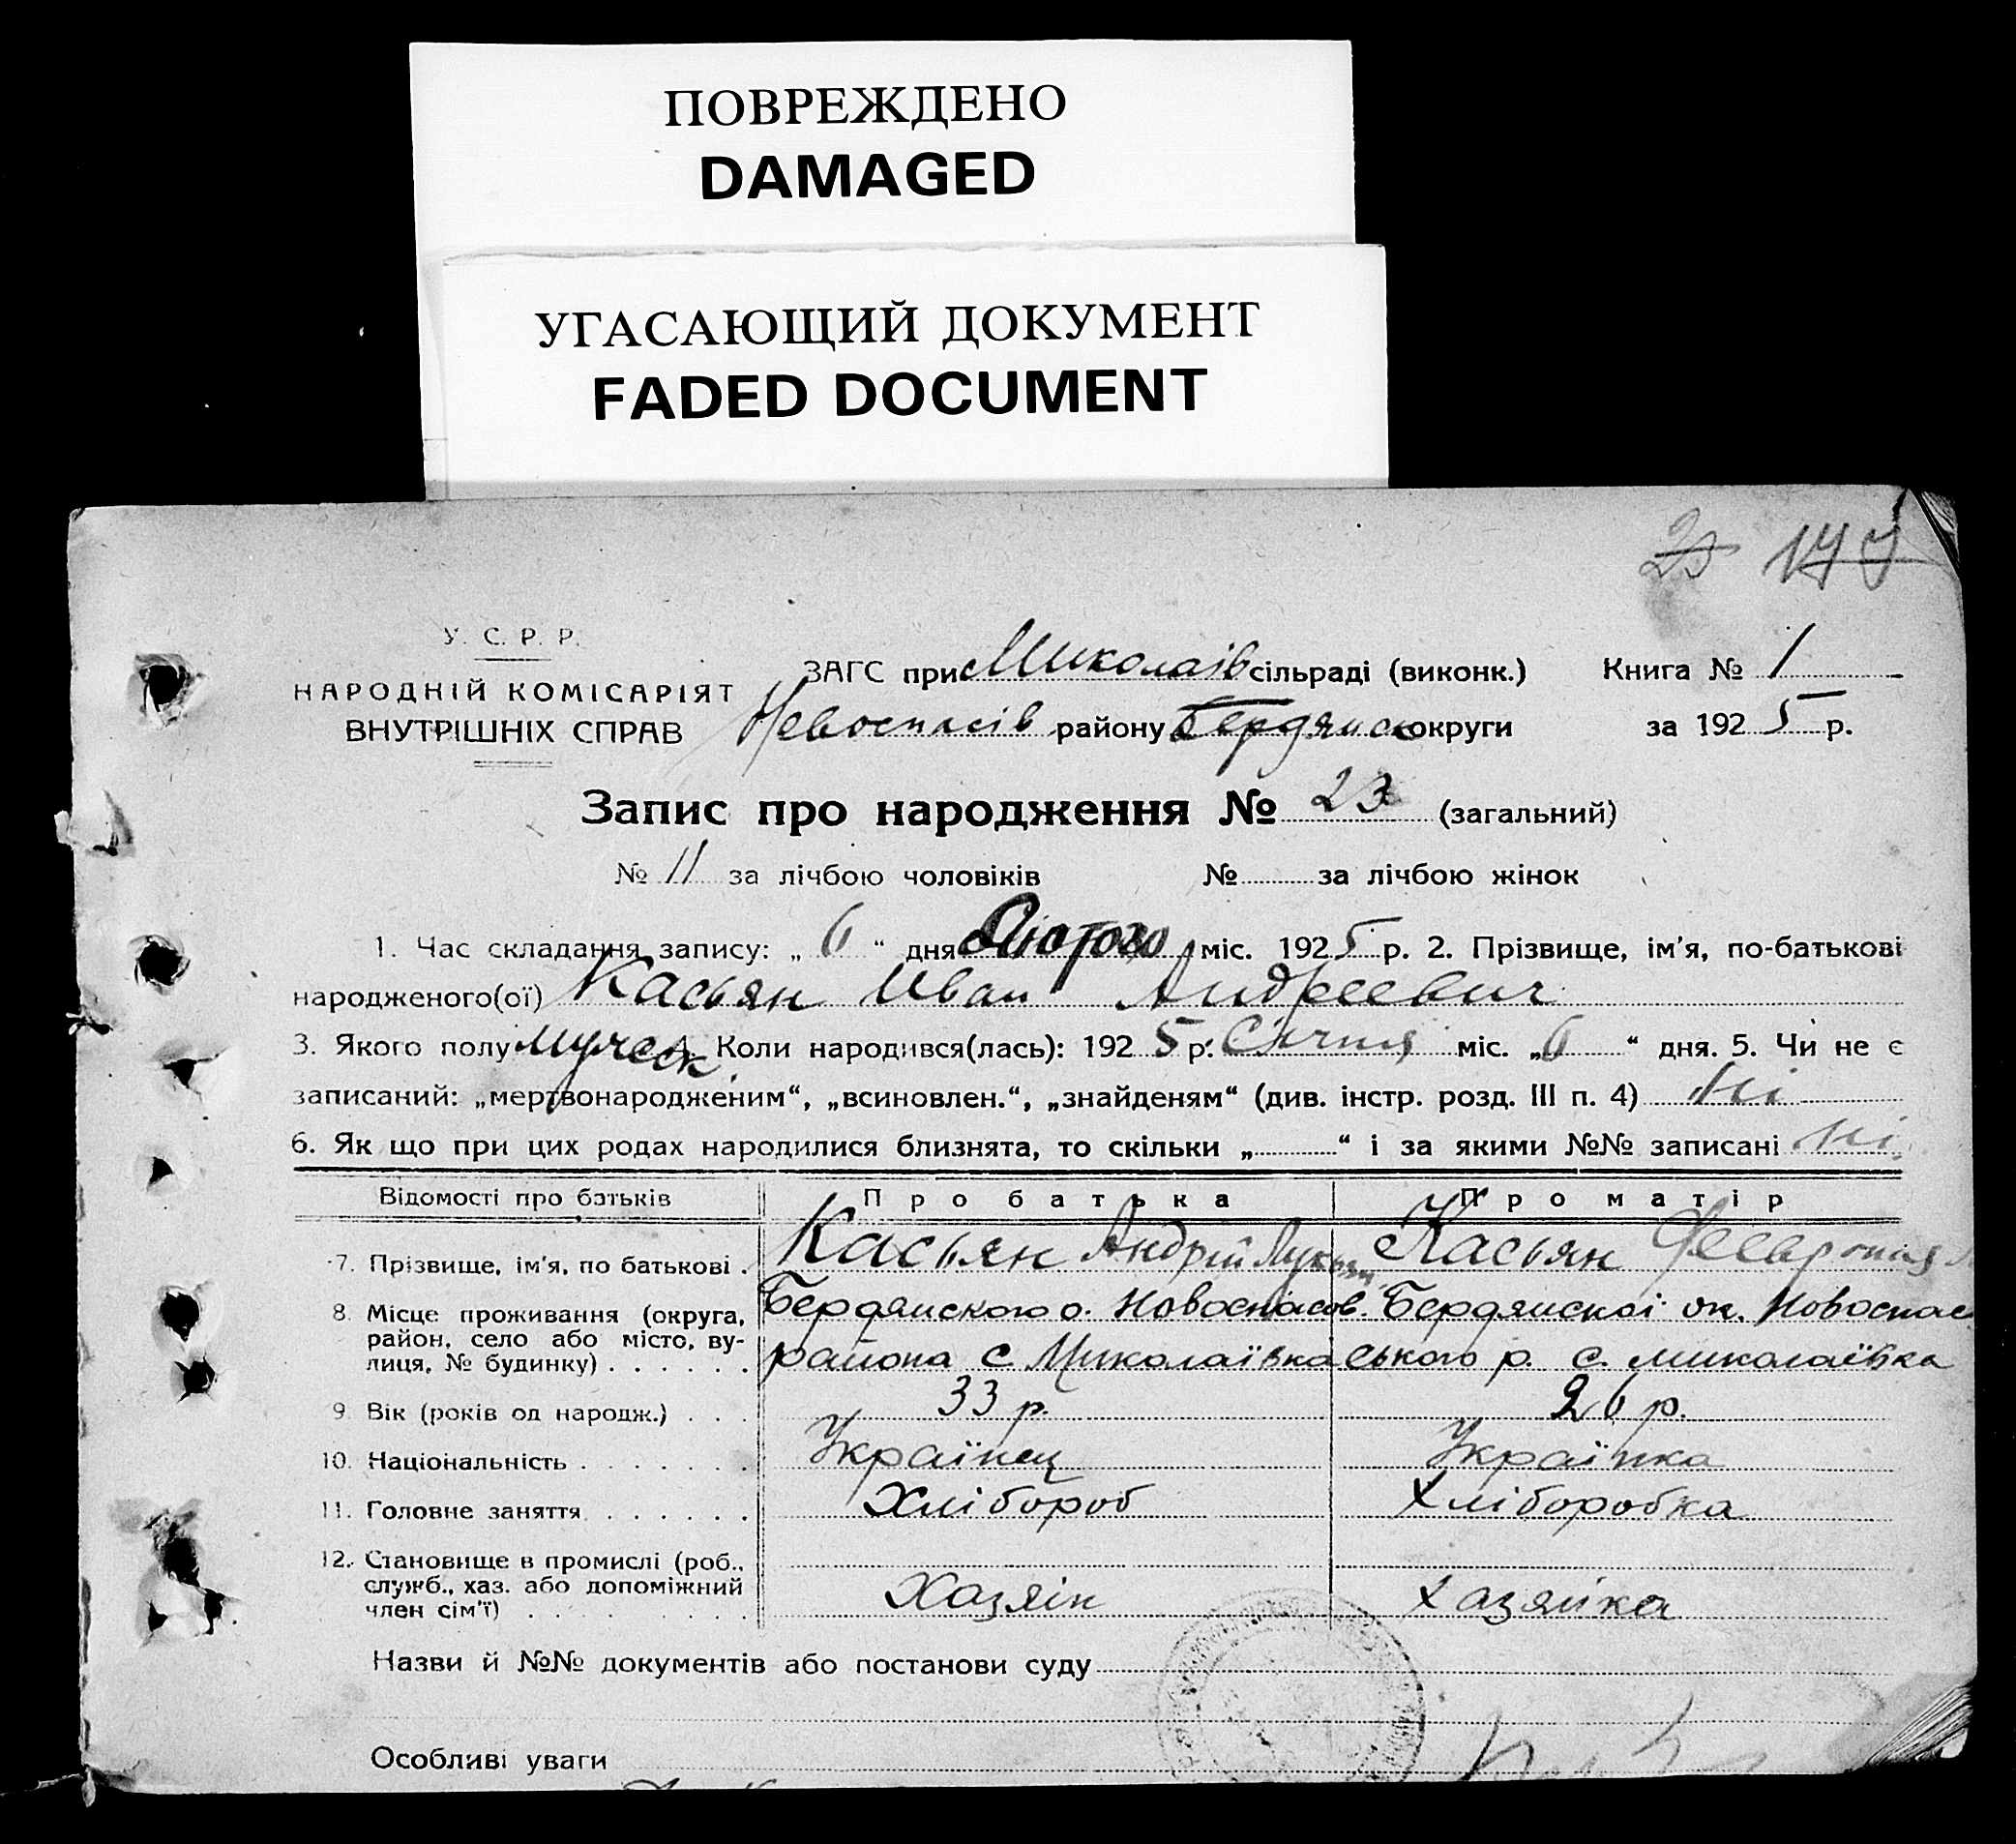 ПОВРЕЖДЕНО
DAMAGED
УГАСАЮЩИЙ ДОКУМЕНТ
FADED DOCUMENT
У. С. Р. Р.
НАРОДНІЙ КОМІСАРІЯТ
ВНУТРІШНІХ СПРАВ
ЗАГС при Миколаїв сільраді (виконк.) Книга № 1
Новоспасів району Бердянськ округи за 1925 р.
Запис про народження № 23 (загальний)
№ 11 за лічбою чоловіків № за лічбою жінок
1. Час складання запису: „ 6 “ дня Лютого міс. 1925 р. 2. Прізвище, ім'я, по-батькові
народженого(ої) Касьян Иван Андреевич
3. Якого полу мужеск. 4. Коли народився(лась): 1925 р. Січня міс. „6“ дня. 5. Чи не є
записаний: „мертвонародженим“, „всиновлен.“, „знайденям“ (див. інстр. розд. III п. 4) Ні
6. Як що при цих родах народилися близнята, то скільки „ “ і за якими №№ записані Ні
Відомості про батьків Про батька Про матір
7. Прізвище, ім'я, по батькові . Касьян Андрій Касьян Феврония
8. Місце проживання (округа, район, село або місто, вулиця, № будинку) . . . . . . Бердянского о. Новоспасов. Бердянскоі ок. Новоспас
района с Миколаївка ського р. с. Миколаївка
9. Вік (років од народж.) . . . 33 р. 26 р.
10. Національність . . . . . . . Українец Українка
11. Головне заняття . . . . . . Хлібороб Хліборобка
12. Становище в промислі (роб., служб., хаз. або допоміжний член сім'ї) . . . . . . . . Хазяін Хазяйка
Назви й №№ документів або постанови суду
Особливі уваги